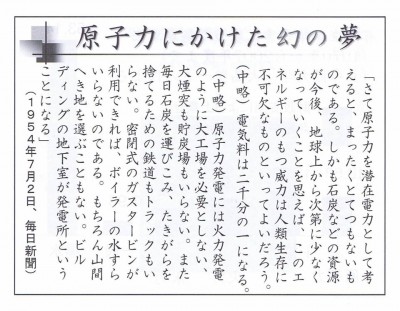 原子力にかけた幻の夢
「さて原子力を潜在電力として考
えると、まったくとてつもないも
のである。しかも石炭などの資源
が今後、地球上から次第に少なく
なっていくことを思えば、このエ
ネルギーのもつ威力は人類生存に
不可欠なものといってよいだろう。
(中略)電気料は二千分の一になる。
(中略)原子力発電には火力発電
のように大工場を必要としない、
大煙突も貯炭場もいらない。また
毎日石炭を運びこみ、たきがらを
捨てるための鉄道もトラックもい
らない。密閉式のガスタービンが
利用できれば、ボイラーの水すら
いらないのである。もちろん山間
へき地を選ぶこともない。ビル
ディングの地下室が発電所という
ことになる」
(1954年7月2日、毎日新聞)